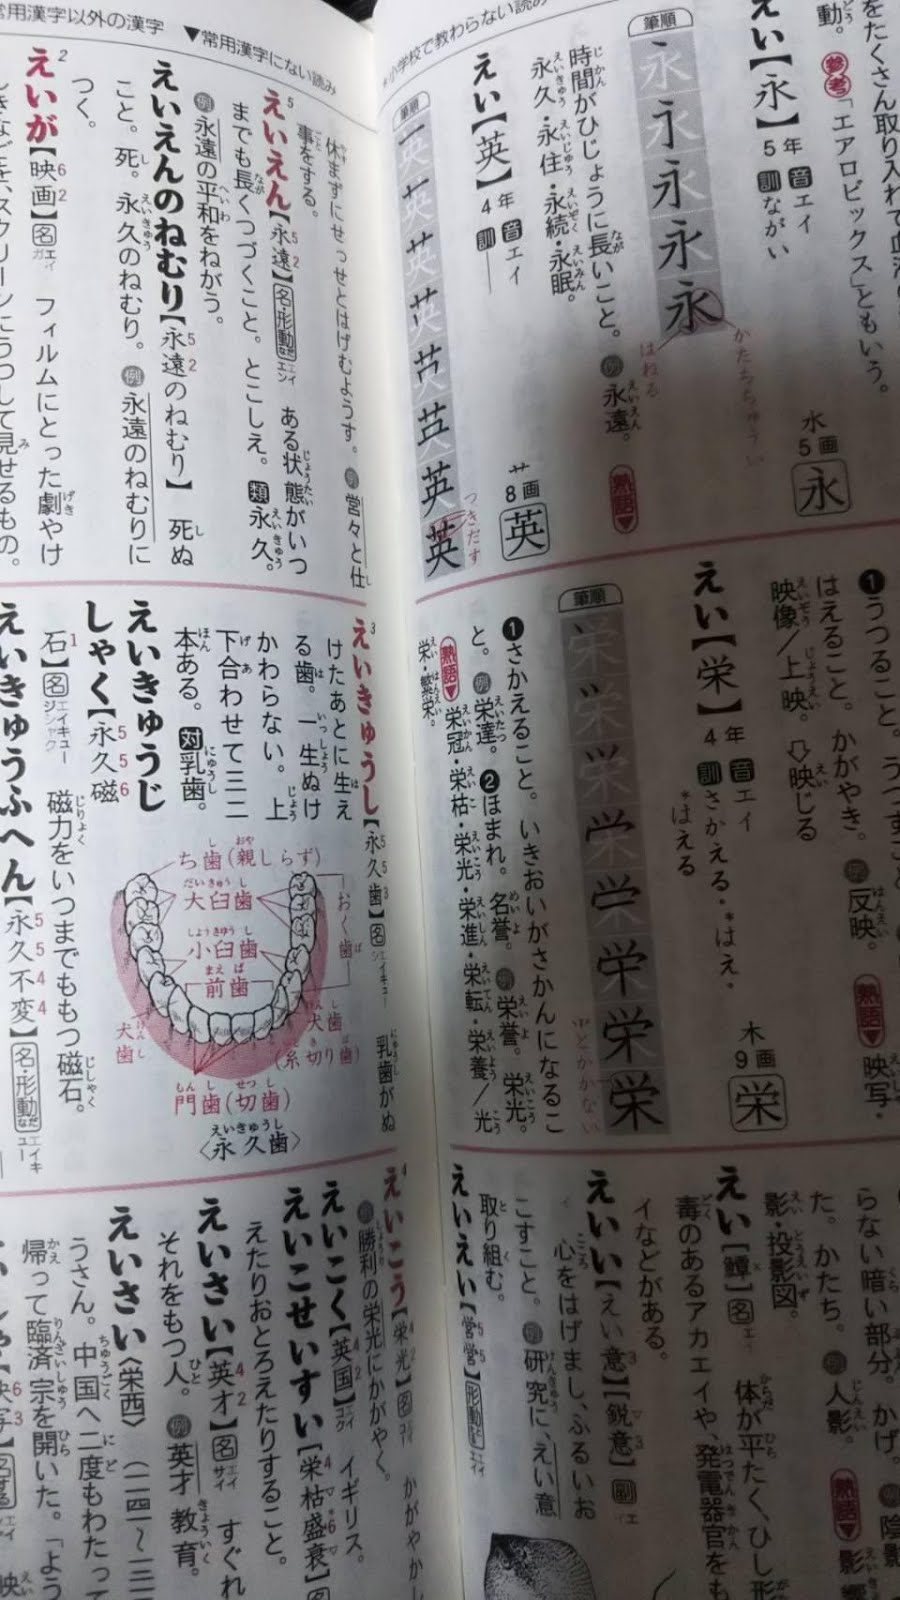 常用漢字以外の漢字 ▼常用漢字にない読み
*小学校で教わらない読み
をたくさん取り入れて血液
動。参考「エアロビックス」ともいう。
えい【永】5年 音エイ 訓ながい
水 5画 永
筆順 永永永永永
はねる
かたちちゅうい
時間がひじょうに長いこと。例永遠。熟語▼
永久・永住・永続・永眠。
えい【英】4年 音エイ 訓―
艹 8画 英
筆順 一英英英英英英英英
つきだす
❶うつること。うつすこと
はえること。かがやき。例反映。熟語▼映写・
映像／上映。⇩映じる
えい【栄】4年 音エイ 訓さかえる・*はえ・
*はえる
木 9画 栄
筆順 栄栄栄栄栄栄栄栄
ツとかかない
❶さかえること。いきおいがさかんになるこ
と。例栄達。❷ほまれ。名誉。例栄誉。栄光。
熟語▼栄冠・栄枯・栄光・栄進・栄転・栄養／光
栄・繁栄。
らない暗い部分。かげ。例陰
た。かたち。例人影。熟語▼影響
影・投影図。
えい【鱏】名エイ 体が平たく、ひし形
毒のあるアカエイや、発電器官をも
イなどがある。
えいい【えい意】【鋭意】副エイイ
心をはげまし、ふるいお
こすこと。例研究に、えい意
取り組む。
えいえい【営営】形動エイエイ
休まずにせっせとはげむようす。例営々と仕
事をする。
えいえん【永遠】名・形動エイエン ある状態がいつ
までも長くつづくこと。とこしえ。類永久。
例永遠の平和をねがう。
えいえんのねむり【永遠のねむり】 死ぬ
こと。死。永久のねむり。例永遠のねむりに
つく。
えいが【映画】名エイガ フィルムにとった劇やけ
しきなどを、スクリーンにうつして見せるもの。
えいきゅうし【永久歯】名エイキュウシ 乳歯がぬ
けたあとに生え
る歯。一生ぬけ
かわらない。上
下合わせて三二
本ある。対乳歯。
ち歯(親しらず)
大臼歯
小臼歯
前歯
おく歯
犬歯
犬歯(糸切り歯)
門歯(切歯)
〈永久歯〉
えいきゅうじ
しゃく【永久磁
石】名エイキュージシャク 磁力をいつまでももつ磁石。
えいきゅうふへん【永久不変】名・形動
えいこう【栄光】名エイコー かがやかし
例勝利の栄光にかがやく。
えいこく【英国】エイコク イギリス。
えいこせいすい【栄枯盛衰】名
えたりおとろえたりすること。
えいさい【英才】名エイサイ すぐれ
それをもつ人。例英才教育。
えいさい〈栄西〉(一一四一〜一二一
うさん。中国へ二度もわたって
帰って臨済宗を開いた。「よう